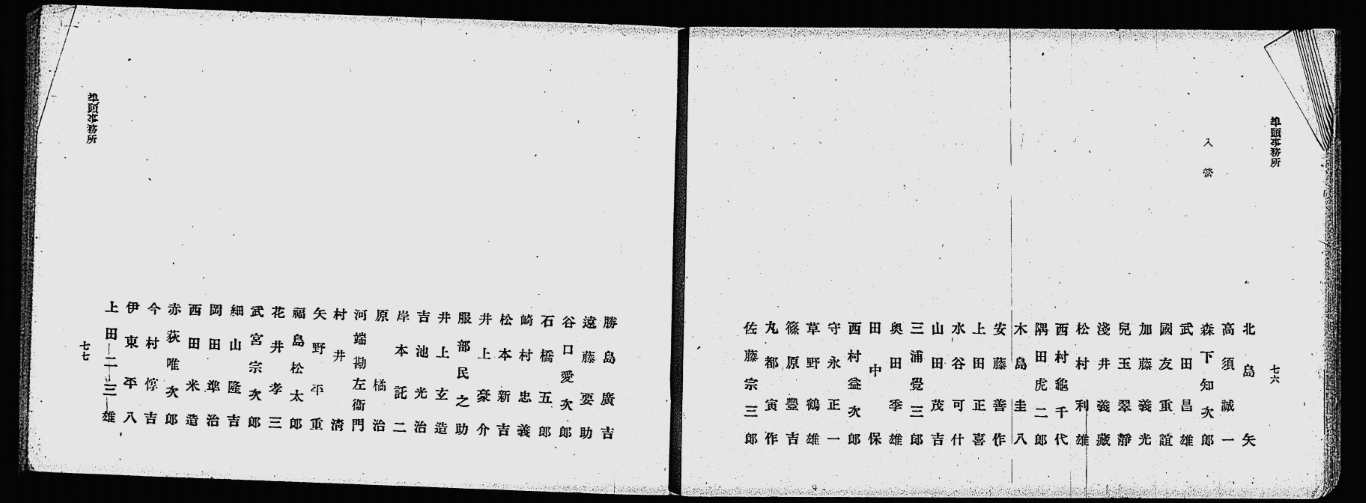 埠頭事務所
七六
入營
北島矢
高須誠一
森下知次郎
武田昌雄
國友重誼
加藤義光
兒玉翠靜
淺井義藏
松村利雄
西村龜千代
隅田虎二郎
木島圭八
安藤善作
上田正喜
水谷可什
山田茂吉
三浦覺三郎
奥田季雄
田中保
西村益次郎
守永正一
草野鶴雄
篠原豐吉
丸都寅作
佐藤宗三郎
勝島廣吉
遠藤要助
谷口愛次郎
石橋五郎
崎村忠義
松本新吉
井上豪介
服部民之助
井上玄造
吉池光治
岸本託二
原橘治
河端勘左衞門
村井淸
矢野平重
福島松太郎
花井孝三
武宮宗次郎
細山隆吉
岡田準治
西田米造
赤荻唯次郎
今村惇吉
伊東平八
上田二三雄
埠頭事務所
七七